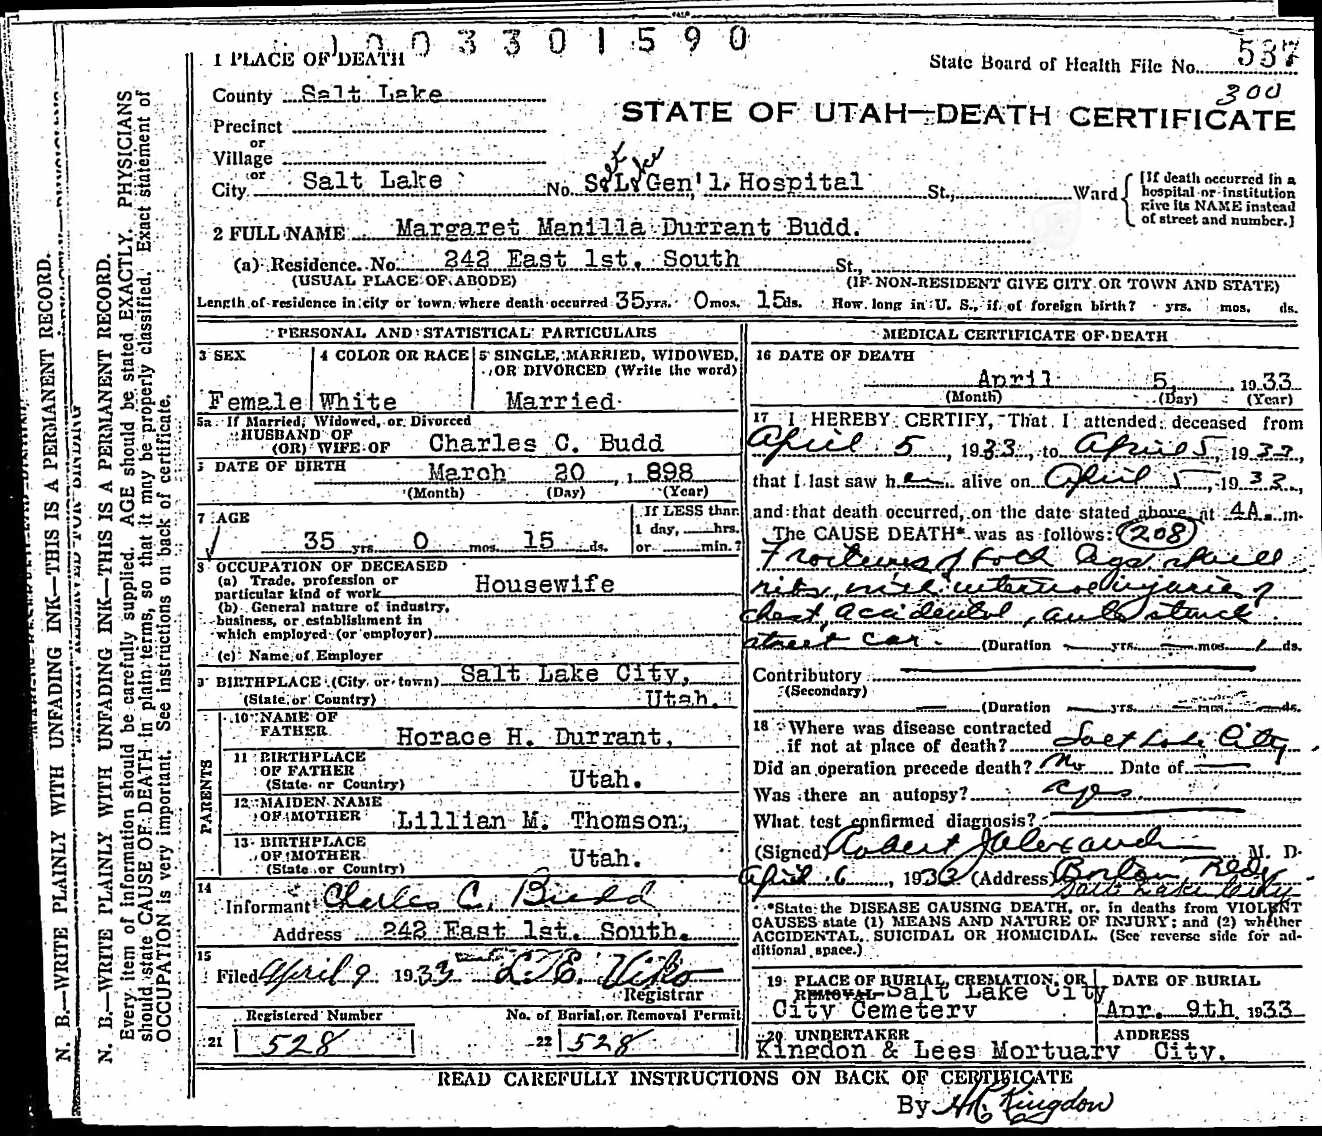 1003301590
1 PLACE OF DEATH
State Board of Health File No. 537
300
County Salt Lake
STATE OF UTAH—DEATH CERTIFICATE
Precinct
or
Village
or
City Salt Lake No. Salt Lake Gen'l. Hospital St., Ward
[If death occurred in a hospital or institution give its NAME instead of street and number.]
2 FULL NAME Margaret Manilla Durrant Budd.
(a) Residence. No. 242 East 1st. South St.,
(USUAL PLACE OF ABODE) (IF NON-RESIDENT GIVE CITY OR TOWN AND STATE)
Length of residence in city or town where death occurred 35 yrs. 0 mos. 15 ds. How long in U. S., if of foreign birth? yrs. mos. ds.
PERSONAL AND STATISTICAL PARTICULARS
3 SEX
4 COLOR OR RACE
5 SINGLE, MARRIED, WIDOWED,
OR DIVORCED (Write the word)
Female White Married
5a If Married, Widowed, or Divorced
HUSBAND OF
(OR) WIFE OF Charles C. Budd
DATE OF BIRTH March 20, 1898
(Month) (Day) (Year)
7 AGE
If LESS than
1 day, hrs.
or min.?
35 yrs. 0 mos. 15 ds.
8 OCCUPATION OF DECEASED
(a) Trade, profession or
particular kind of work Housewife
(b) General nature of industry,
business, or establishment in
which employed (or employer)
(c) Name of Employer
9 BIRTHPLACE (City or town) Salt Lake City,
(State or Country) Utah.
PARENTS
10 NAME OF
FATHER Horace H. Durrant.
11 BIRTHPLACE
OF FATHER
(State or Country) Utah.
12 MAIDEN NAME
OF MOTHER Lillian M. Thomson,
13 BIRTHPLACE
OF MOTHER
(State or Country) Utah.
14
Informant Charles C. Budd
Address 242 East 1st. South.
15
Filed April 9 1933
Registrar
Registered Number No. of Burial or Removal Permit
21 528 22 528
MEDICAL CERTIFICATE OF DEATH
16 DATE OF DEATH
April 5, 1933
(Month) (Day) (Year)
17 I HEREBY CERTIFY, That I attended deceased from
April 5, 1933, to April 5, 1933,
that I last saw her alive on April 5, 1933,
and that death occurred, on the date stated above, at 4A. m.
The CAUSE DEATH* was as follows: 208
Fractures of both legs, skull
ribs, with internal injuries of
chest, accidental, auto struck
street car (Duration yrs. mos. 1 ds.
Contributory
(Secondary)
(Duration yrs. mos. ds.
18 Where was disease contracted
if not at place of death? Salt Lake City
Did an operation precede death? No Date of
Was there an autopsy? Yes
What test confirmed diagnosis?
(Signed) Robert J Alexander M. D.
April 6, 1933 (Address) Boston Bldg
Salt Lake City
*State the DISEASE CAUSING DEATH, or, in deaths from VIOLENT
CAUSES state (1) MEANS AND NATURE OF INJURY; and (2) whether
ACCIDENTAL, SUICIDAL OR HOMICIDAL. (See reverse side for ad-
ditional space.)
19 PLACE OF BURIAL, CREMATION, OR
REMOVAL Salt Lake City
City Cemetery
DATE OF BURIAL
Apr. 9th. 1933
20 UNDERTAKER ADDRESS
Kingdon & Lees Mortuary City.
READ CAREFULLY INSTRUCTIONS ON BACK OF CERTIFICATE
By H. C. Kingdon
N. B.—WRITE PLAINLY WITH UNFADING INK—THIS IS A PERMANENT RECORD.
N. B.—WRITE PLAINLY WITH UNFADING INK—THIS IS A PERMANENT RECORD.
Every item of information should be carefully supplied. AGE should be stated EXACTLY. PHYSICIANS
should state CAUSE OF DEATH in plain terms, so that it may be properly classified. Exact statement of
OCCUPATION is very important. See instructions on back of certificate.